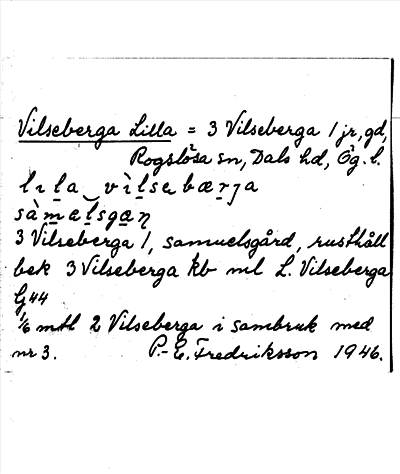 Vilseberga Lilla = 3 Vilseberga 1 jr, gd,
Rogslösa sn, Dals hd, Ög. l.
lıla vìlsebærja
sàmælsgan
3 Vilseberga 1, samuelsgård, rusthåll
bek 3 Vilseberga kb ml L. Vilseberga
G 44
1/6 mtl 2 Vilseberga i sambruk med
nr 3. P.-E. Fredriksson 1946.